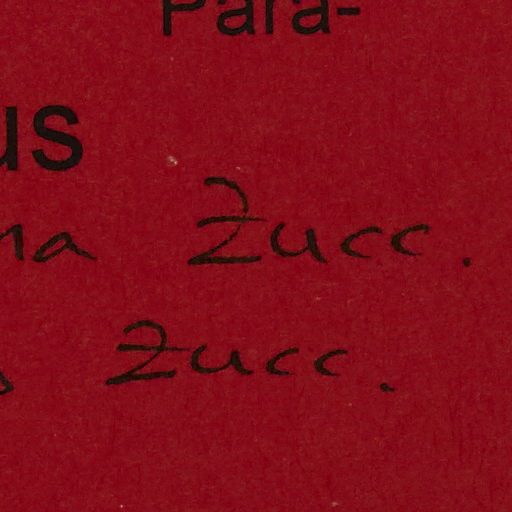 Para-
us
na Zucc.
Zucc.